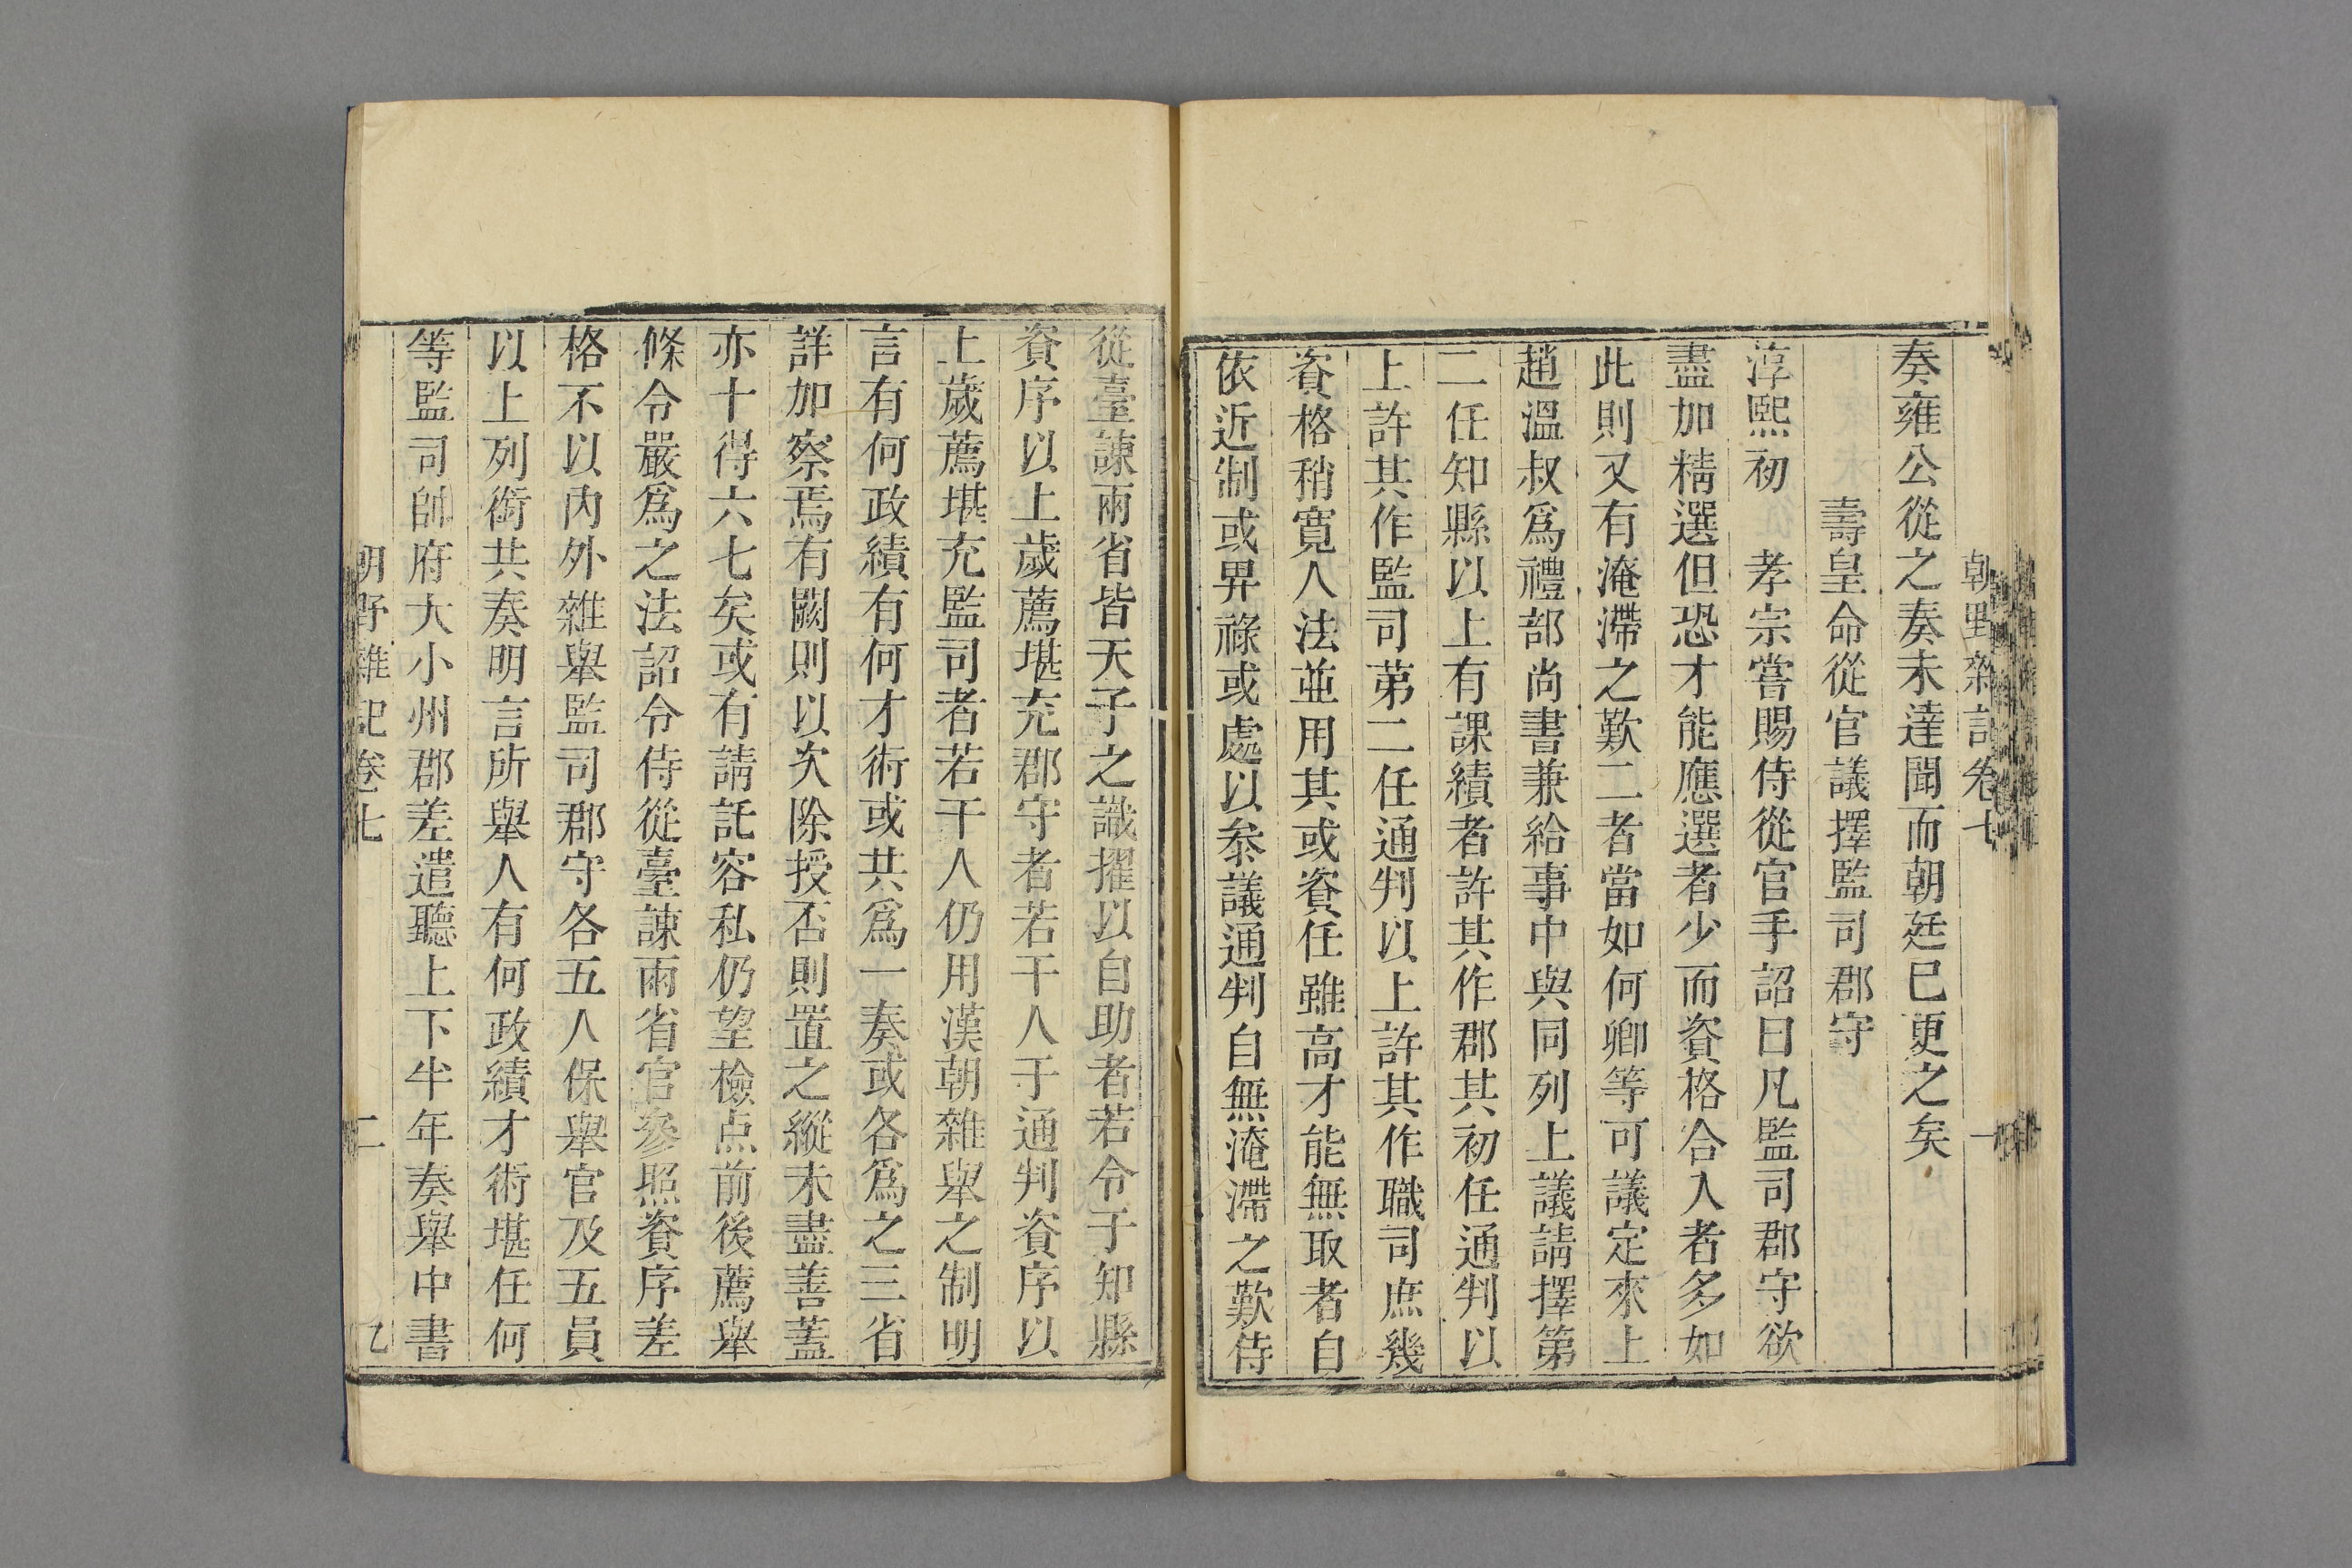 朝野雜記卷七 一
奏雍公從之奏未達聞而朝廷已更之矣
壽皇命從官議擇監司郡守
淳熙初 孝宗嘗賜侍從官手詔曰凡監司郡守欲
盡加精選但恐才能應選者少而資格合入者多如
此則又有淹滯之歎二者當如何卿等可議定來上
趙溫叔爲禮部尚書兼給事中與同列上議請擇第
二任知縣以上有課績者許其作郡其初任通判以
上許其作監司第二任通判以上許其作職司庶幾
資格稍寬人法並用其或資任雖高才能無取者自
依近制或畀祿或處以叅議通判自無淹滯之歎侍
從臺諫兩省皆天子之識擢以自助者若令于知縣
資序以上歲薦堪充郡守者若干人于通判資序以
上歲薦堪充監司者若干人仍用漢朝雜舉之制明
言有何政績有何才術或共爲一奏或各爲之三省
詳加察焉有闕則以次除授否則置之縱未盡善蓋
亦十得六七矣或有請託容私仍望檢点前後薦舉
條令嚴爲之法詔令侍從臺諫兩省官參照資序差
格不以內外雜舉監司郡守各五人保舉官及五員
以上列銜共奏明言所舉人有何政績才術堪任何
等監司帥府大小州郡差遣聽上下半年奏舉中書
朝野雜記卷七 二